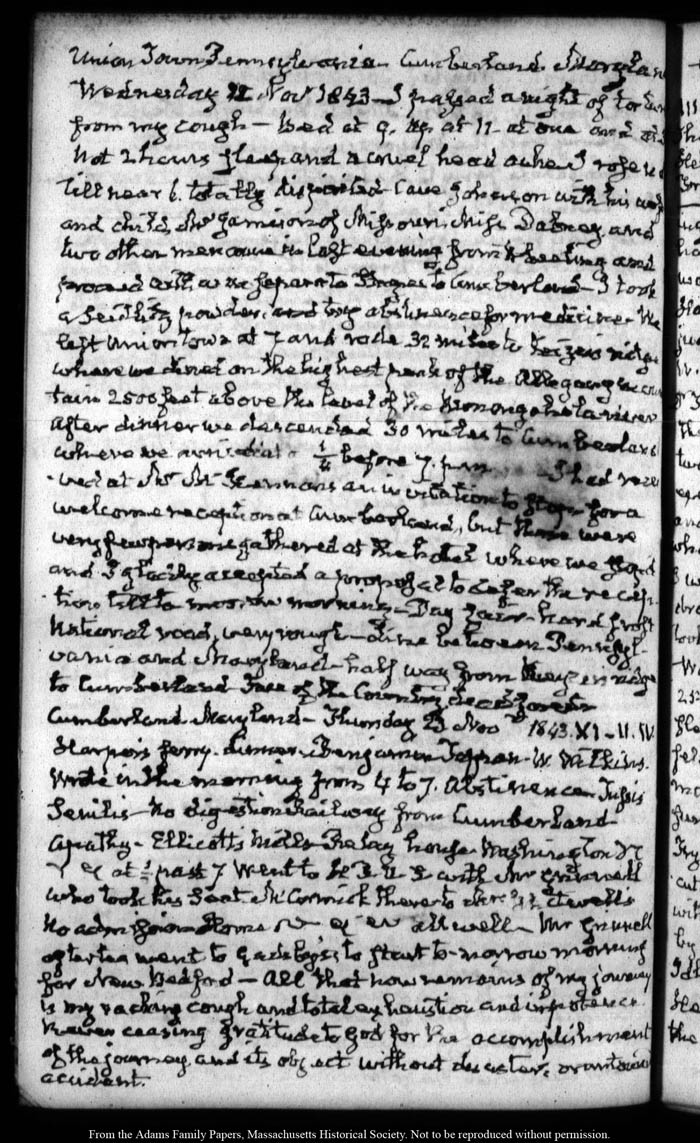 Union Town Pennsylvania - Cumberland. Maryland
Wednesday 22 Nov 1843 - I passed a night of torture
from my cough - Bed at 9. up at 11. at one and
not 2 hours sleep and a cruel head ache I rose
till near 6. totally dispirited Cave Johnson with his wife
and child, Mr Jamison of Missouri. Miss Dabney and
two other men came in last evening from Wheeling and
proceed with us in separate Stages to Cumberland - I took
a Seidlitz powder, and try abstinence for medicine - We
left Uniontown at 7 and rode 32 miles to Keizers ridge
where we dined on the highest peak of the Allegany moun
tain 2500 feet above the level of the Monongahela river
After dinner we descended 30 miles to Cumberland
where we arrived at 1/4 before 7. p.m. I had recei
ved at an invitation to stop for a
welcome reception at Cumberland, but there were
very few persons gathered at the hotel where we stop'd
and I gladly accepted a proposal to defer the recep-
tion till to morrow morning - Day fair - hard frost
National road, very rough - line between Pennsyl-
vania and Maryland - half way from Keyzers ridge
to Cumberland Face of the Country
Cumberland. Maryland - Thursday 23 Nov 1843. XI - II. IV.
Harpers ferry. dinner. Benjamin Tappan. W. Watkins.
Wrote in the morning from 4 to 7. Abstinence Tussis
Senilis - no digestion Railway from Cumberland
apathy - Ellicott's Mills - Relay house - Washington
at 1/2 past 7 Went to with Mr Grinnell
who took his Seat. McCormick there to
no admission Home all well - Mr Grinnell
after tea went to Gadsby's, to start to-morrow morning
for New Bedford - All that now remains of my journey
is my racking cough and total exhaustion and impotence
Never ceasing gratitude to God for the accomplishment
of the journey and its object without disaster, or untoward
accident.
From the Adams Family Papers, Massachusetts Historical Society. Not to be reproduced without permission.